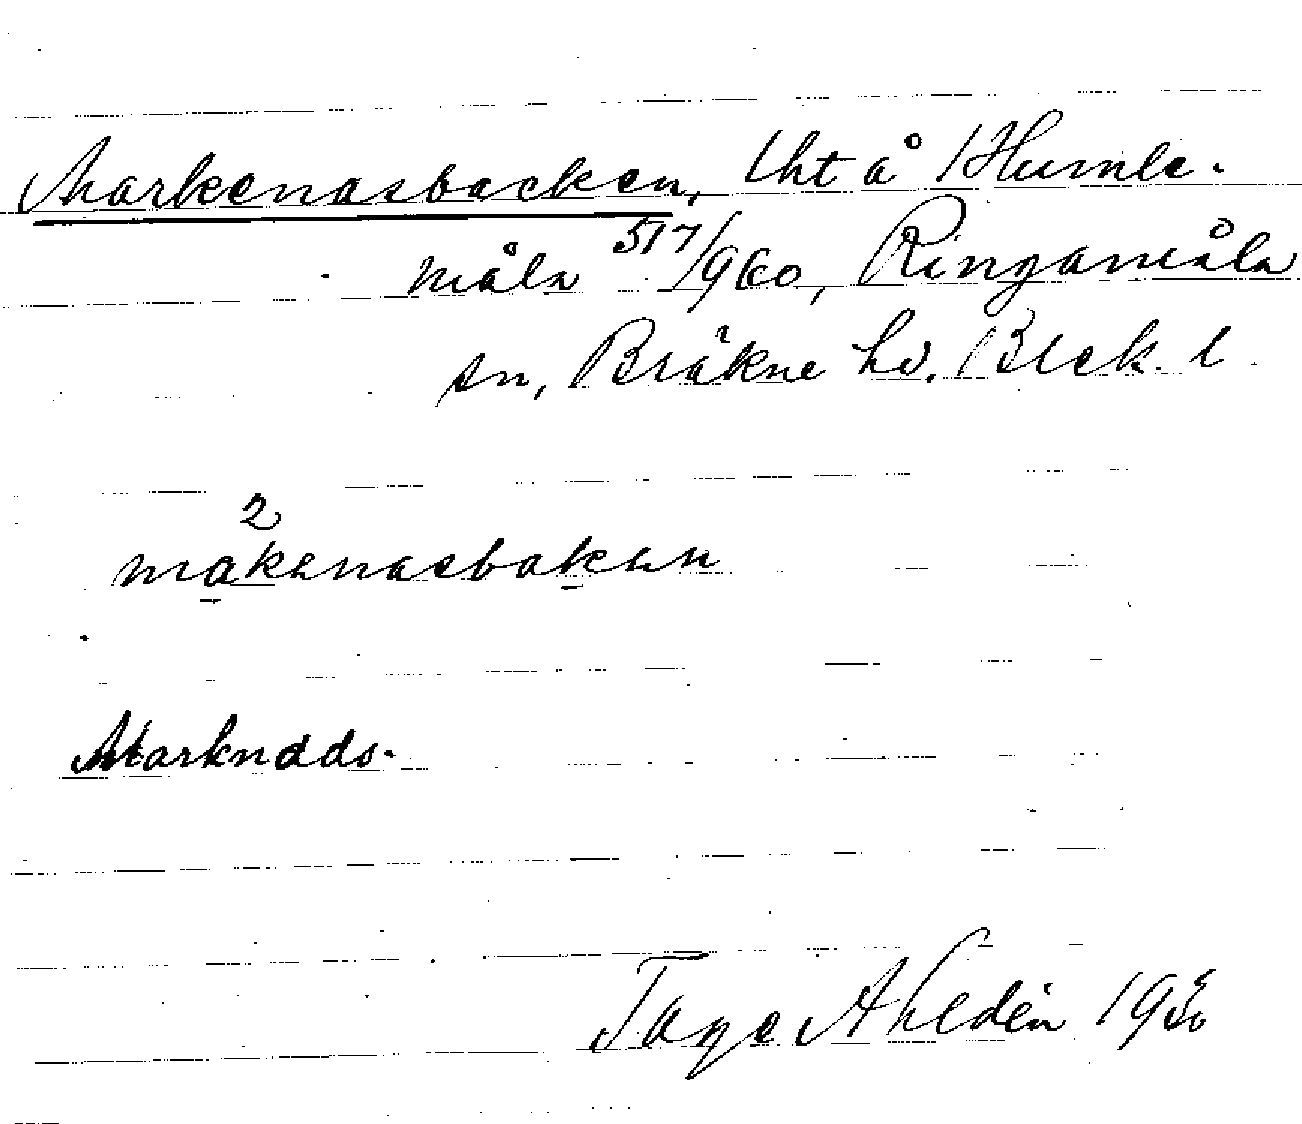 Markenasbacken, lht å Humle-
måla 517/960, Ringamåla
sn, Bräkne hd. Blek. l
2
makenasbaken
Marknads-
Tage Ahldén